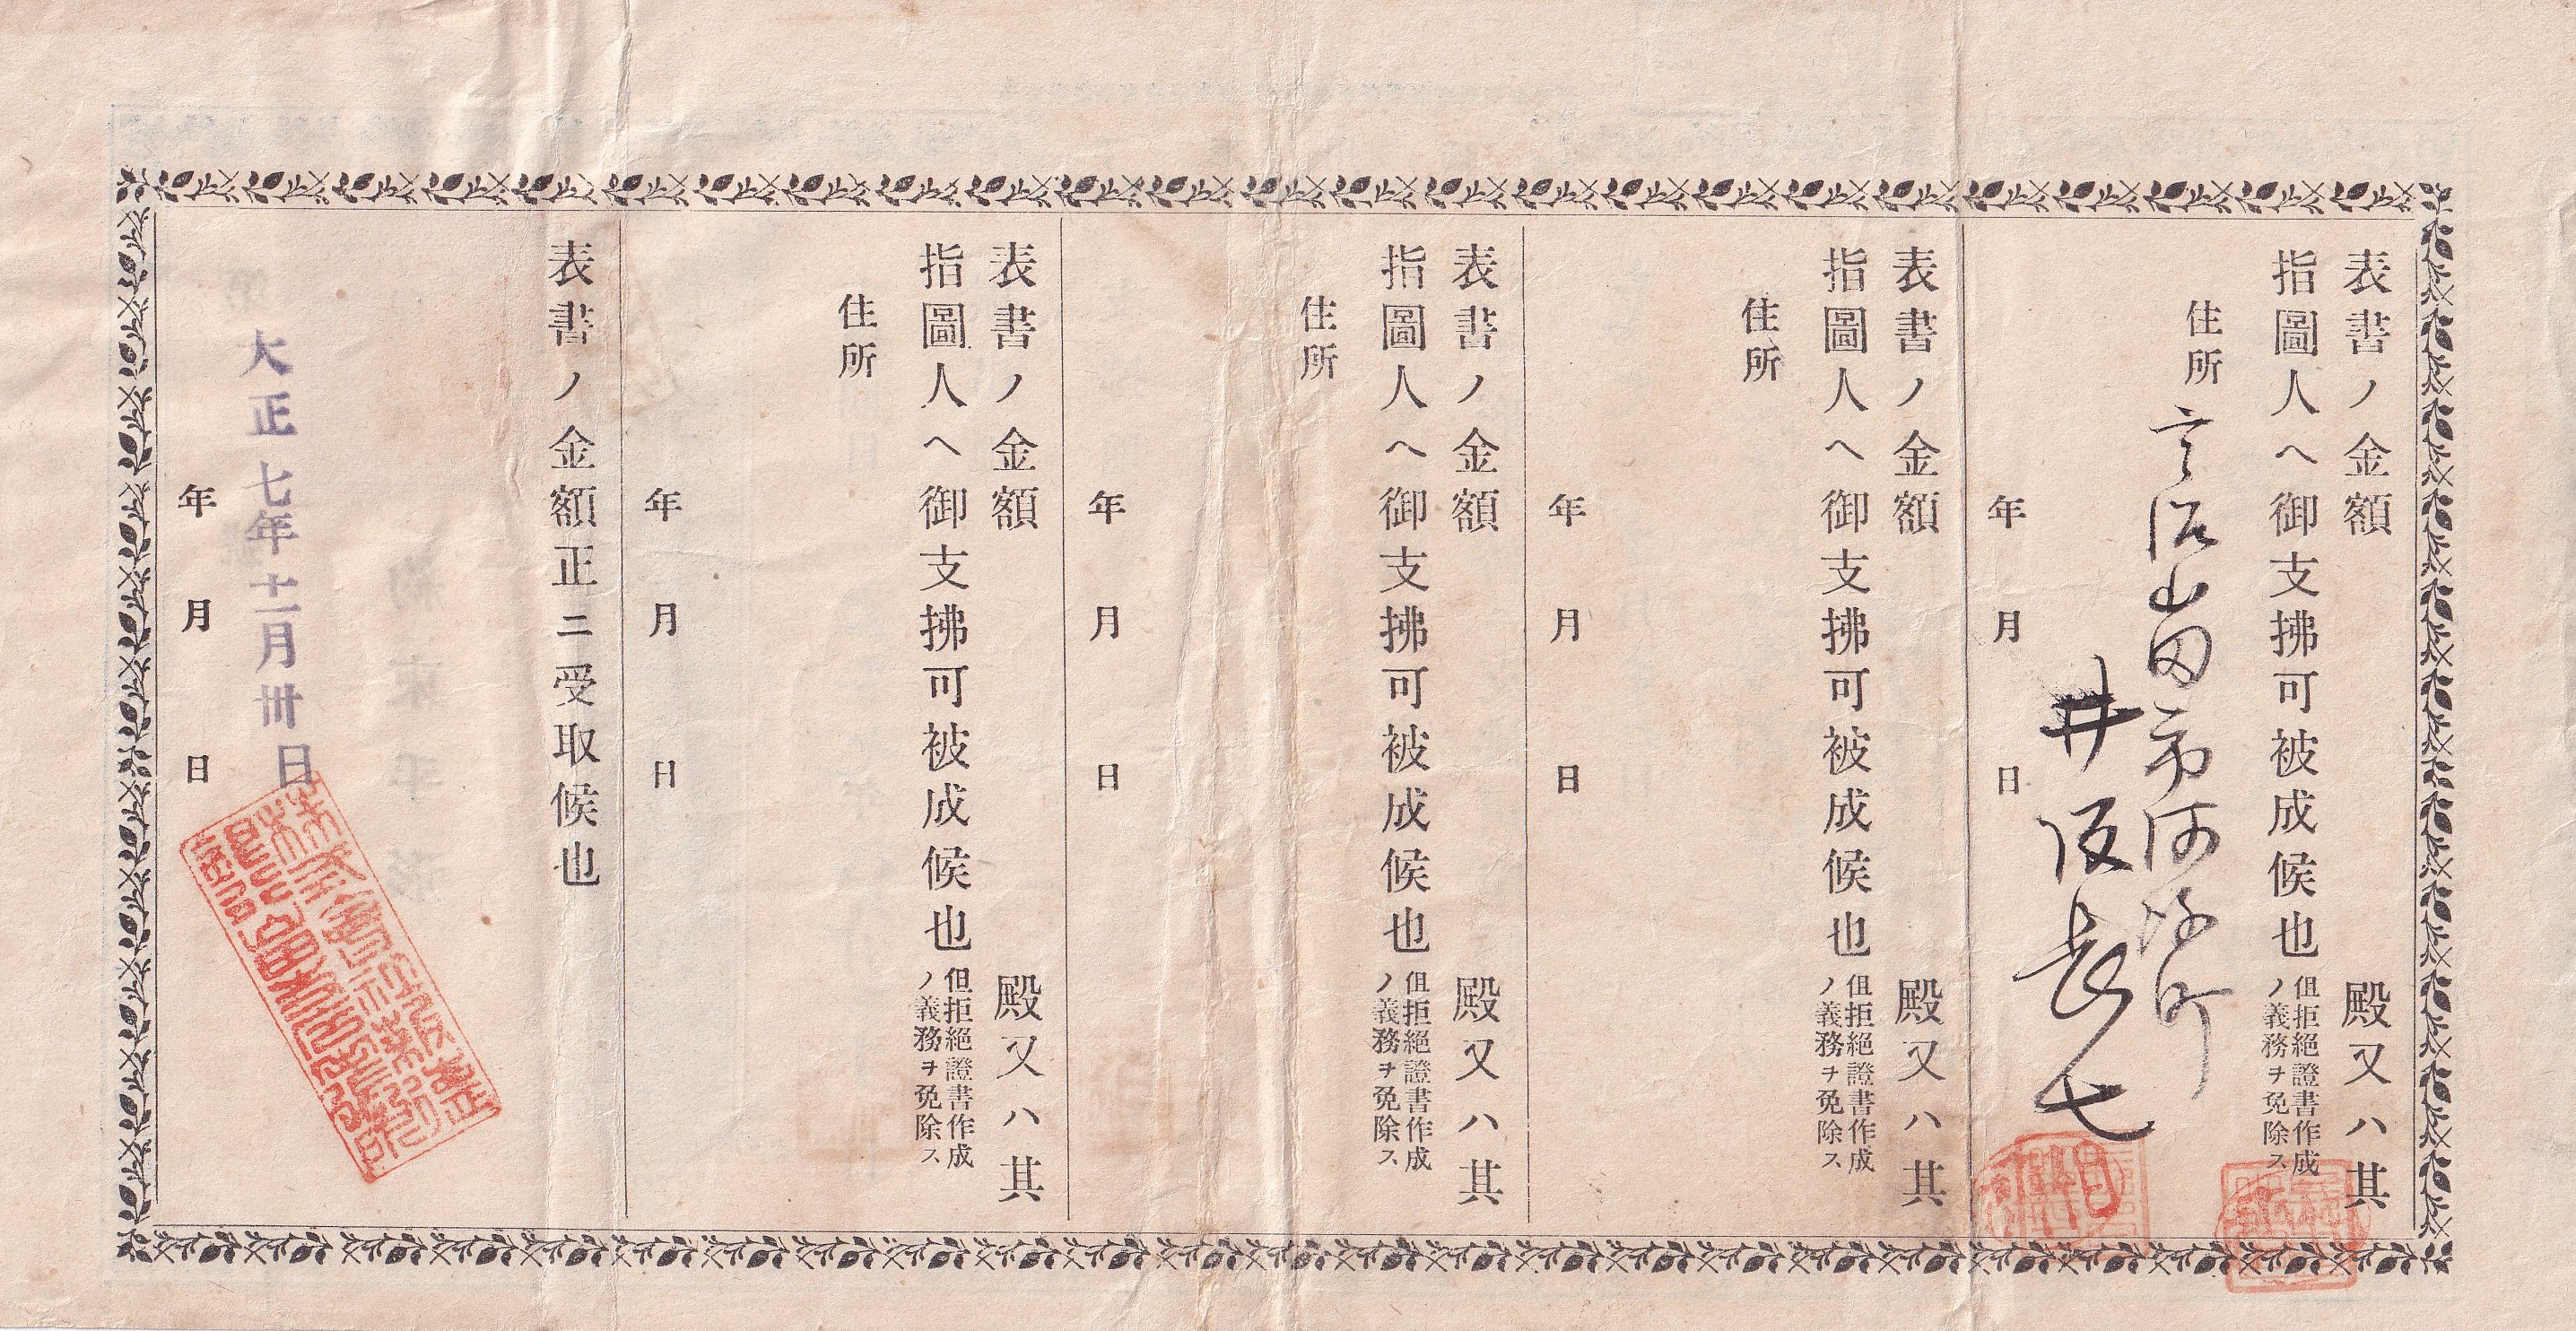 表書ノ金額
殿又ハ其
指圖人ヘ御支拂可被成候也
但拒絕證書作成
ノ義務ヲ免除ス
住所
宇治山田市河崎町
井阪長七
年 月 日
表書ノ金額
殿又ハ其
指圖人ヘ御支拂可被成候也
但拒絕證書作成
ノ義務ヲ免除ス
住所
年 月 日
表書ノ金額
殿又ハ其
指圖人ヘ御支拂可被成候也
但拒絕證書作成
ノ義務ヲ免除ス
住所
年 月 日
表書ノ金額
殿又ハ其
指圖人ヘ御支拂可被成候也
但拒絕證書作成
ノ義務ヲ免除ス
住所
年 月 日
表書ノ金額正ニ受取候也
大正七年十一月卅日
年 月 日